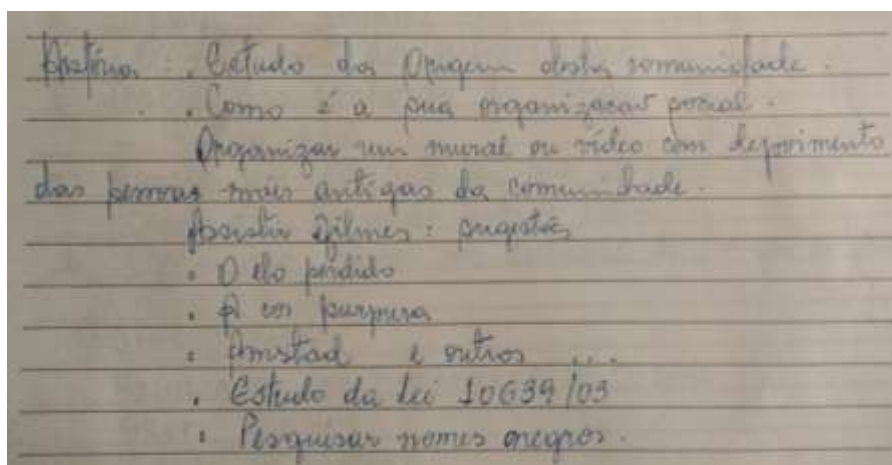 História : . Estudo da Origem desta comunidade .
. Como é a sua organizacao social .
Organizar um mural ou vídeo com depoimento
das pessoas mais antigas da comunidade .
Assistir Filmes : sugestões
. O elo perdido
. A cor purpura
. Amstad e outros ...
. Estudo da lei 10639/03
. Pesquisar nomes negros .